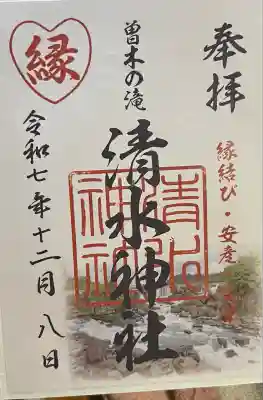 奉拝
縁結び・安産
曽木の滝
清水神社
清水神社
縁
令和七年十二月八日